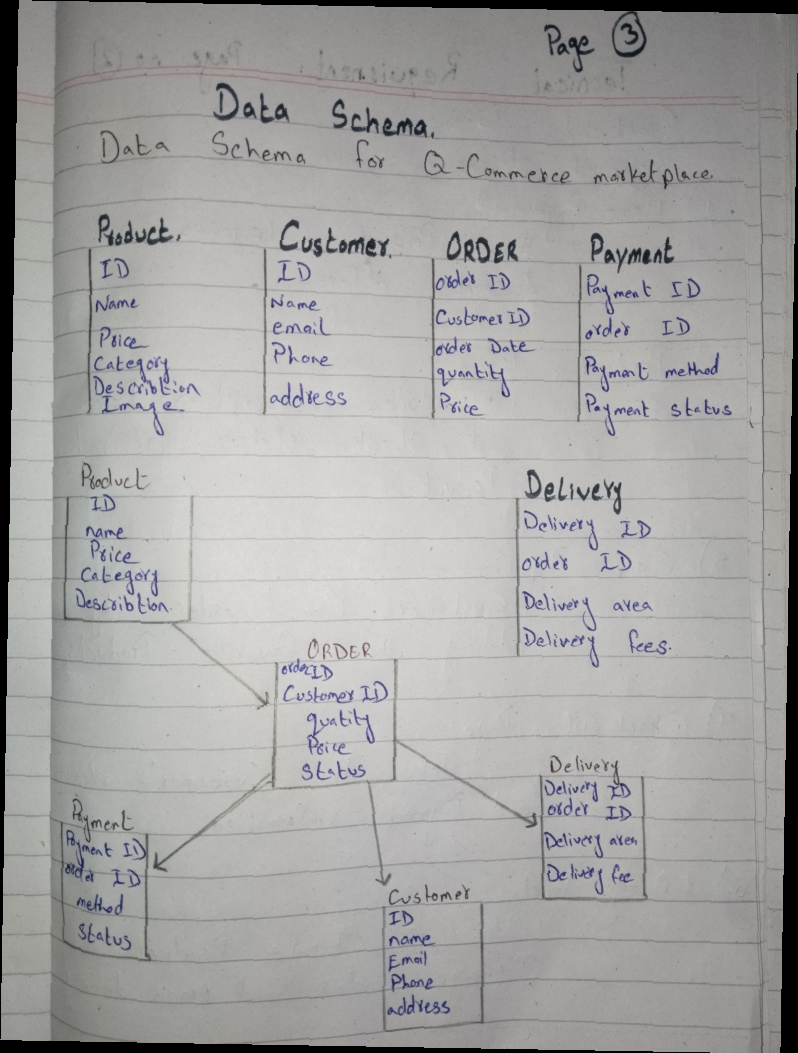 Page 3
Data Schema.
Data Schema for Q-Commerce marketplace.
Product.
ID
Name
Price
Category
Describtion
Image
Customer.
ID
Name
email
Phone
address
ORDER
order ID
Customer ID
order Date
quantity
Price
Payment
Payment ID
order ID
Payment method
Payment status
Product
ID
name
Price
Category
Describtion.
Delivery
Delivery ID
order ID
Delivery area
Delivery fees.
ORDER
order ID
Customer ID
quatity
Price
Status
Payment
Payment ID
order ID
method
Status
Customer
ID
name
Email
Phone
address
Delivery
Delivery ID
order ID
Delivery area
Delivery fee